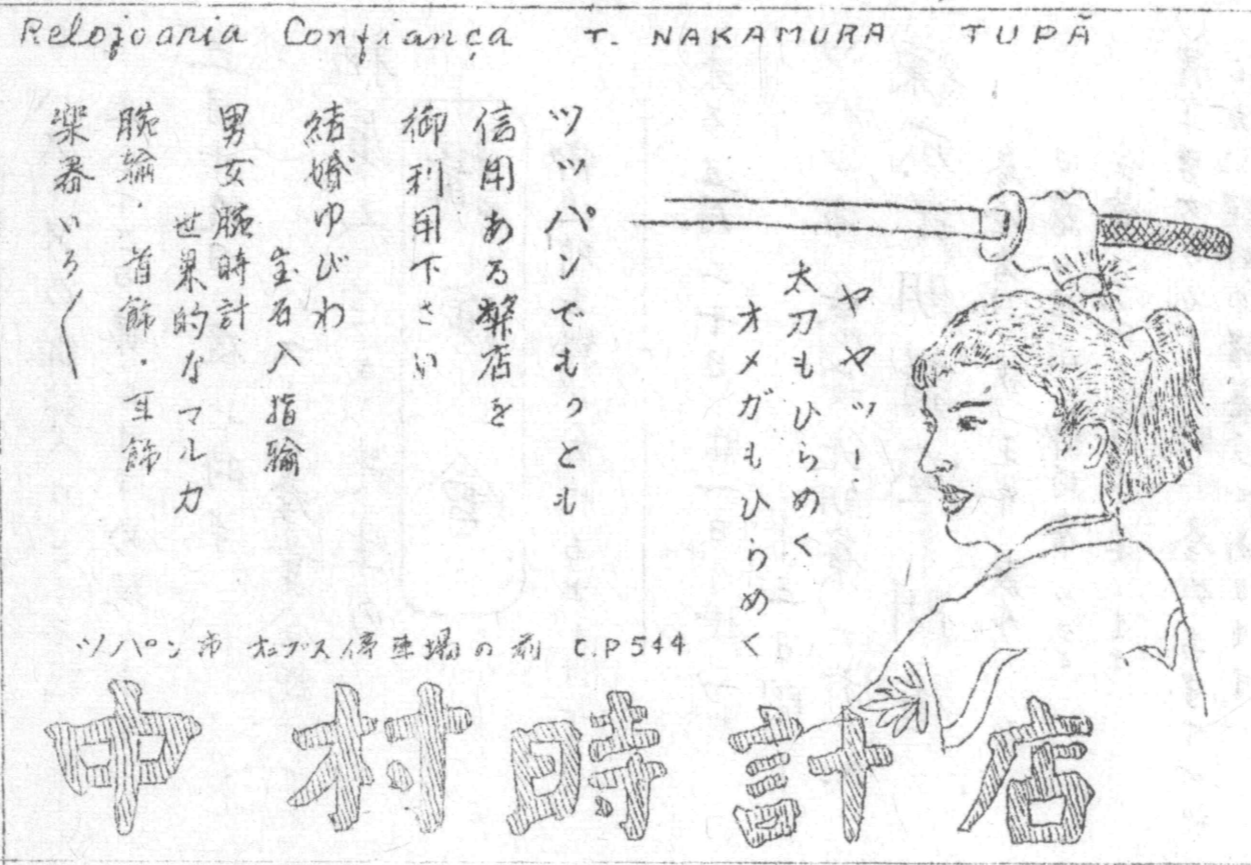 Relojoaria Confiança T. NAKAMURA TUPÃ
ヤヤッ！
太刀もひらめく
オメガもひらめく
ツッパンでもっとも
信用ある弊店を
御利用下さい
結婚ゆびわ
宝石入指輪
男女腕時計
世界的なマルカ
腕輪・首飾・耳飾
楽器いろ〱
ツパン市 停車場の前 C.P 544
中村時計店